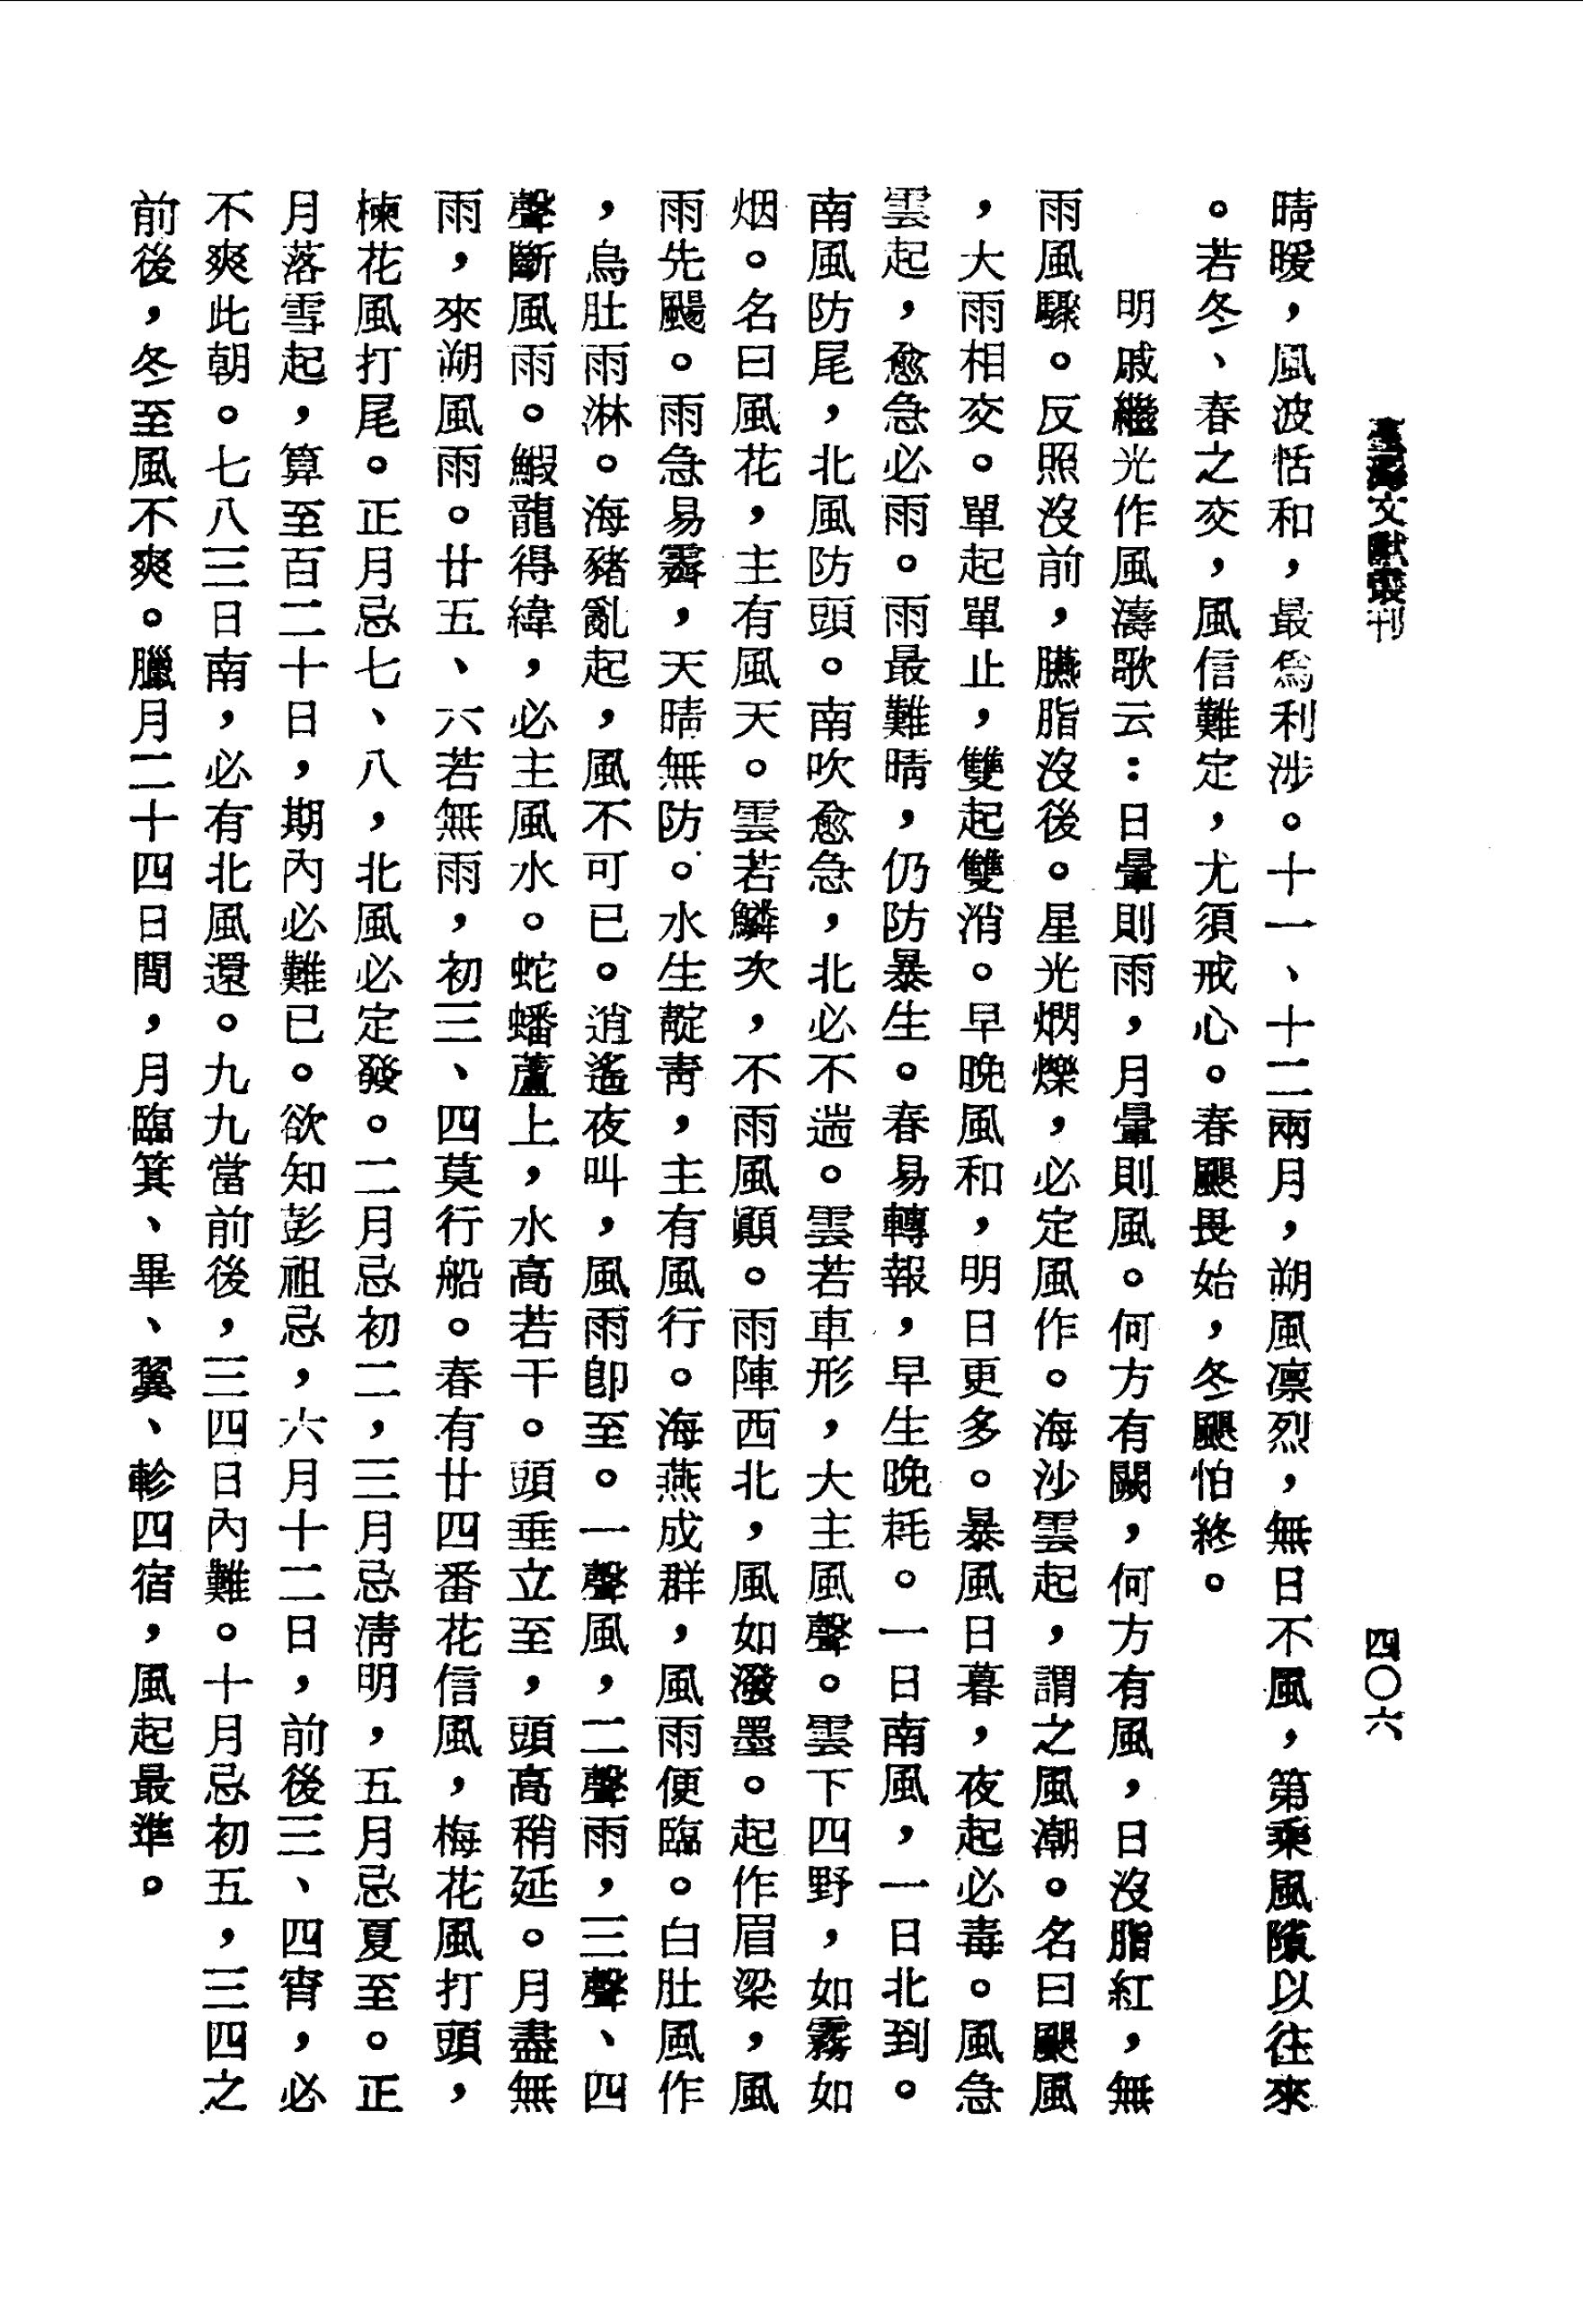 臺灣文獻叢刊
四〇六
晴暖，風波恬和，最爲利涉。十一、十二兩月，朔風凛烈，無日不風，第乘風隙以往來
。若冬、春之交，風信難定，尤須戒心。春颶畏始，冬颶怕終。
明戚繼光作風濤歌云：日暈則雨，月暈則風。何方有闕，何方有風，日沒脂紅，無
雨風驟。反照沒前，臙脂沒後。星光燜爍，必定風作。海沙雲起，謂之風潮。名曰颶風
，大雨相交。單起單止，雙起雙消。早晚風和，明日更多。暴風日暮，夜起必毒。風急
雲起，愈急必雨。雨最難晴，仍防暴生。春易轉報，早生晚耗。一日南風，一日北到。
南風防尾，北風防頭。南吹愈急，北必不遄。雲若車形，大主風聲。雲下四野，如霧如
烟。名曰風花，主有風天。雲若鱗次，不雨風顚。雨陣西北，風如潑墨。起作眉梁，風
雨先颺。雨急易霽，天晴無防。水生靛靑，主有風行。海燕成群，風雨便臨。白肚風作
，烏肚雨淋。海豬亂起，風不可已。逍遙夜叫，風雨卽至。一聲風，二聲雨，三聲、四
聲斷風雨。鰕龍得緯，必主風水。蛇蟠蘆上，水高若干。頭垂立至，頭高稍延。月盡無
雨，來朔風雨。廿五、六若無雨，初三、四莫行船。春有廿四番花信風，梅花風打頭，
楝花風打尾。正月忌七、八，北風必定發。二月忌初二，三月忌淸明，五月忌夏至。正
月落雪起，算至百二十日，期內必難已。欲知彭祖忌，六月十二日，前後三、四宵，必
不爽此朝。七八三日南，必有北風還。九九當前後，三四日內難。十月忌初五，三四之
前後，冬至風不爽。臘月二十四日間，月臨箕、畢、翼、軫四宿，風起最準。